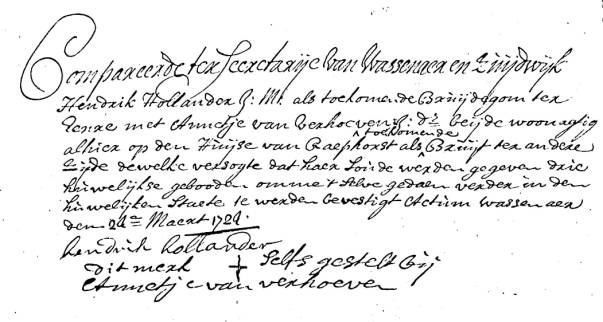 Compareerde ter Secretarije van Wassenaer en Zuijdwijk
Hendrik Hollander J: M: als toekomende Bruijdegom ter
Eenre met Annetje van Verhoeven J: Dr beijde woonagtig
alhier op den Huijse van Raephorst als toekomende Bruijt ter andere
Zijde dewelke versogte dat haer Soude werden gegeven drie
huwelijkse gebooden omme t Selve gedaen verder in den
huwelijken Staete te werden bevestigt Actum Wassenaer
den Maert
hendrik hollander
dit merk + Selfs gestelt bij
Annetje van verhoeven